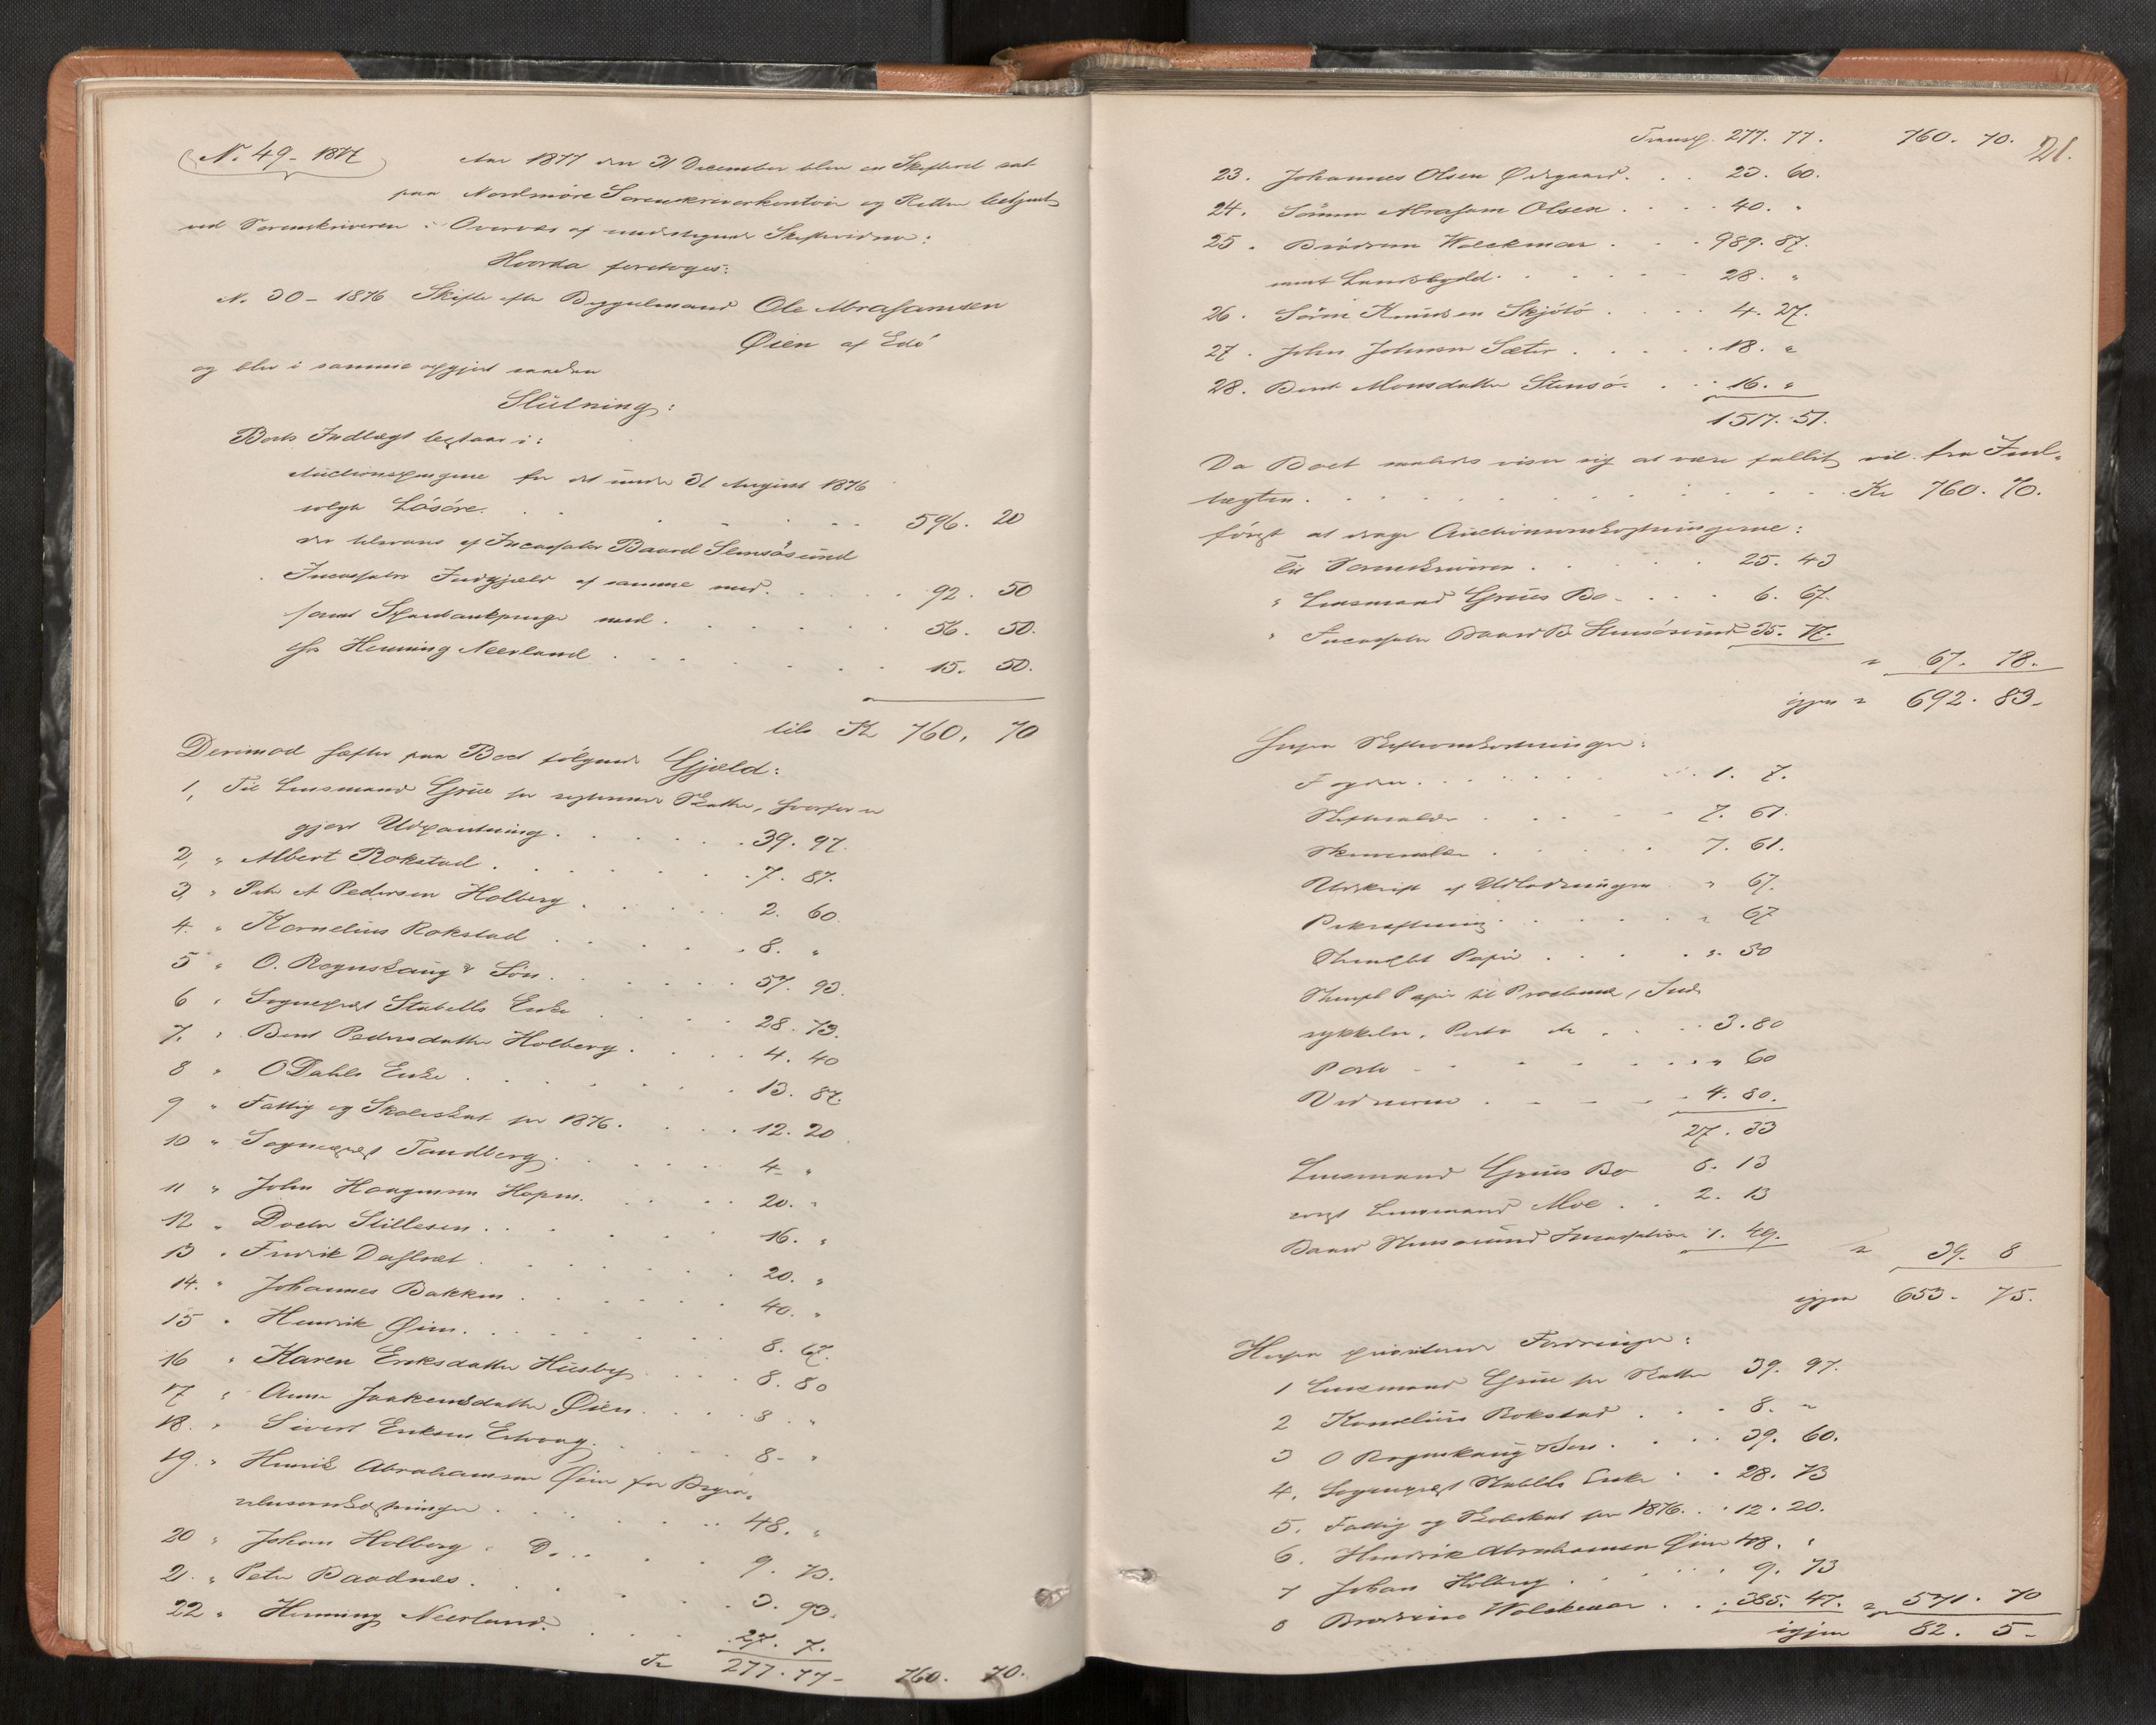 N. 49 - 1877
Aar 1877 den 31 December blev en Skifteret sat
paa Nordmöre Sorenskriverkontoir og Retten betjent
ved Sorenskriveren i Overvær af undertegnede Skiftevidner:
Hvorda foretoges:
N. 30 - 1876 Skifte efter Bygselmand Ole Abrahamsen
Øien af Edö
og blev i samme afgjort saadan
Slutning:
Boets Indtægt bestaar i:
Auctionspengene for det under 31 August 1876
solgte Lösöre . . . 596. 20
der leveres af Incassator Baard Stensösund
Incassator Indgjæld af samme med . . . 92. 50
samt Sparebankpenge med . . . 56. 50.
fra Henning Neerland . . . 15. 50.
tils Kr 760. 70
Derimod hefter paa Boet følgende Gjæld:
1, Til Lensmand Grue for resterende Skatter, hvorfor er
gjort Udpantning . . . 39. 97.
2, " Albert Rokstad . . . 7. 87.
3, " Peter A Pedersen Holberg . . . 2. 60.
4. " Kornelius Rokstad . . . 8. "
5 " O. Rognskaug & Sön . . . 57. 93.
6 " Sognepræst Stabells Enke . . . 28. 73.
7. " Berit Pedersdatter Holberg . . . 4. 40
8 " O Dahls Enke . . . 13. 87.
9 " Fattig og Skoleskat for 1876 . . . 12. 20
10 " Sognepræst Tandberg . . . 4 "
11 " John Haagensen Hopen . . . 20. "
12 " Doctor Stillesen . . . 16. "
13 " Fredrik Dahlset . . . 20. "
14. " Johannes Bakken . . . 40. "
15 " Henrik Øien . . . 8. 67.
16 " Karen Eriksdatter Husby . . . 8. 80
17 " Anne Joakemsdatter Øien . . . 8. "
18. " Sivert Eriksen Edvaag . . . 8 - "
19. " Henrik Abrahamsen Øien for Begra-
velsesomkostninger . . . 48. "
20 " Johan Holberg " Do . . . 9. 73.
21. " Peter Baadnes . . . 3. 93.
22 " Henning Neerland . . . 27. 7.
Tr 277. 77 - 760. 70.
21.
Transp. 277. 77. 760. 70.
23. Johannes Olsen Ødegaard . . . 23. 60.
24. Sönnen Abraham Olsen . . . 40. "
25. Brödrene Volckmar . . . 989. 87.
samt Landsbygld . . . 28. "
26. Sören Knudsen Skjölö . . . 4. 27.
27. John Johnsen Sæter . . . 18. "
28. Berit Monsdatter Stensö . . . 16. "
1517. 51.
Da Boet saaledes viser sig at være fallit, vil fra Ind-
tægten . . . Kr 760. 70.
først at drage Auctionsomkostningerne:
til Sorenskriveren . . . 25. 43
" Lensmand Grues Bo . . . 6. 67.
" Incassator Baard B Stensösund 35. 77.
" 67. 78.
igjen " 692. 83 -
herfra Skifteomkostninger:
Fogden . . . 1. 7.
. . . 7. 61.
. . . 7. 61.
Udskrift af Udlodningen " 67.
Bekræftning . . . " 67
Stemplet Papir . . . " 30
Stempl Papir til Proclama, Ind-
rykkelse, Porto etc . . . 3. 80
Porto . . . " 60
Vidnerne . . . 4. 80.
27. 33
Lensmand Grues Bo 8. 13
const Lensmand Moe . . 2. 13
Baard Stensösund Incassation 1. 49.
" 39. 8
igjen 653. 75.
Herfra prioriterede Fordringer:
1 Lensmand Grue for Skatter 39. 97.
2 Kornelius Rokstad . . . 8. "
3 O Rognskaug & Sön . . . 39. 60.
4. Sognepræst Stabells Enke . . 28. 73
5. Fattig og Skoleskat for 1876 . . 12. 20.
6. Hendrik Abrahamsen Øien 48. "
7 Johan Holberg . . . 9. 73
8 Brödrene Volckmar . . 385. 47. " 571. 70
igjen 82. 5 -